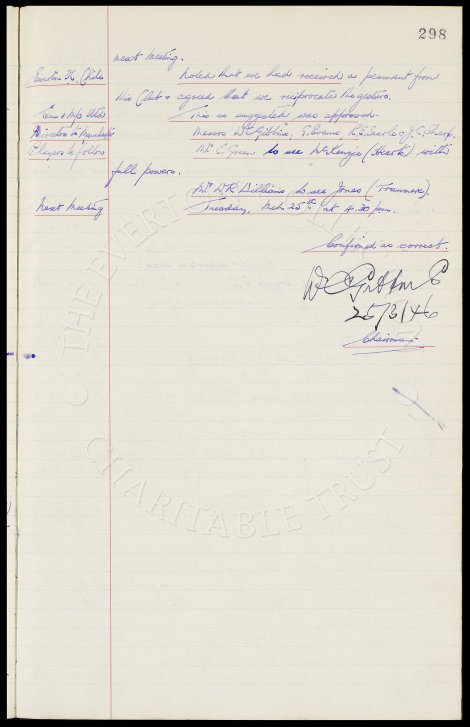 298
next meeting.
Everton F.C. Chile Noted that we had received a pennant from
this Club & agreed that we reciprocate the gesture.
Team v M/c Utd This as suggested was approved.
Director to Manchester Messrs W.C. Gibbins, T. Evans, R.E. Searle, J.C. Sharp.
Players to follow Mr. E. Green to see McKenzie (Hearts) with
full powers.
Mr. W.R. Williams to see Jones (Tranmere).
Next Meeting Tuesday, Mch 25th at 4.30 pm.
Confirmed as correct.
25/3/46
Chairman.
THE EVERTON
CHARITABLE TRUST